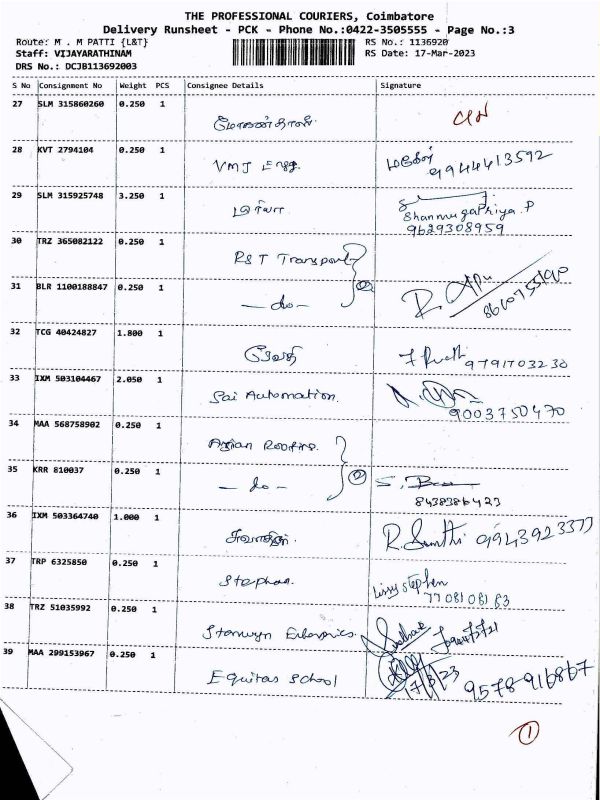 THE PROFESSIONAL COURIERS, Coimbatore
Delivery Runsheet - PCK - Phone No.:0422-3505555 - Page No.:3
Route: M . M PATTI {L&T} RS No.: 1136920
Staff: VIJAYARATHINAM RS Date: 17-Mar-2023
DRS No.: DCJB113692003
S No Consignment No Weight PCS Consignee Details Signature
27 SLM 315860260 0.250 1
28 KVT 2794104 0.250 1 VMJ 9944413592
29 SLM 315925748 3.250 1 Shanmugapriya.P
9629308959
30 TRZ 365082122 0.250 1 RST Transport
31 BLR 1100188847 0.250 1 - do - 2
32 TCG 40424827 1.800 1 ரேவதி 9791703230
33 IXM 503104467 2.050 1 Sai Automation.
9003750470
34 MAA 568758902 0.250 1 Asian Roofing.
35 KRR 810037 0.250 1 - do - 2
8438386423
36 IXM 503364740 1.000 1 R. Sumthi 9943923377
37 TRP 6325850 0.250 1 Stephan. Linsy stephen
38 TRZ 51035992 0.250 1 Stanwyn Enterprises
39 MAA 299153967 0.250 1 Equitas School 17/3/23 9578916867
1